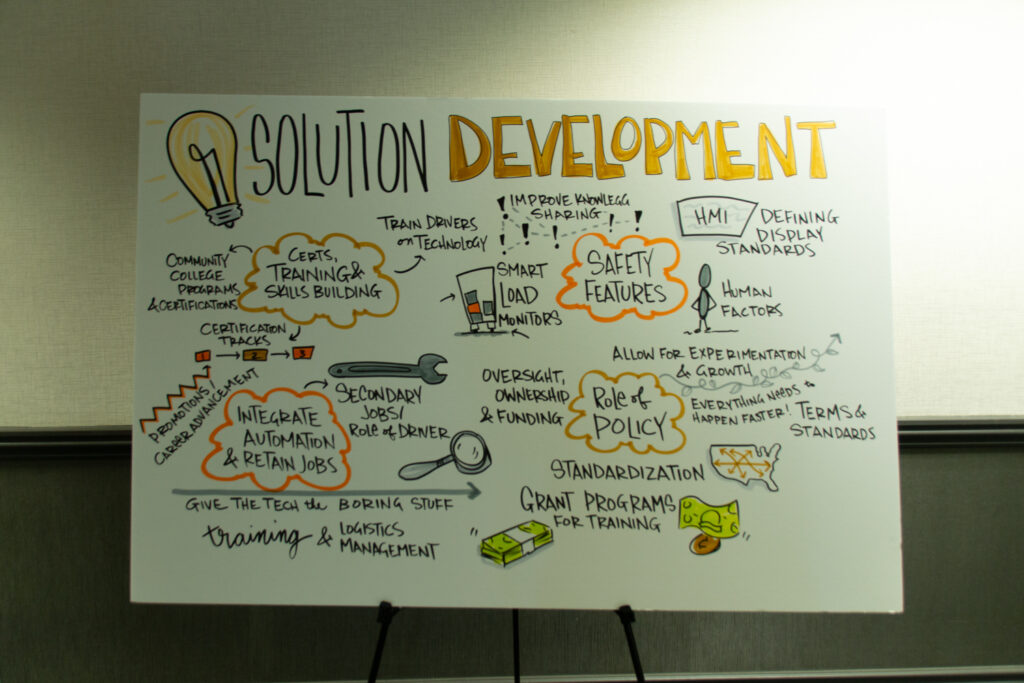 SOLUTION DEVELOPMENT
CERTS,
TRAINING &
SKILLS BUILDING
TRAIN DRIVERS
on TECHNOLOGY
COMMUNITY
COLLEGE
PROGRAMS
& CERTIFICATIONS
CERTIFICATION
TRACKS
1
2
3
PROMOTIONS/
CAREER ADVANCEMENT
INTEGRATE
AUTOMATION
& RETAIN JOBS
SECONDARY
JOBS/
ROLE OF DRIVER
GIVE THE TECH the BORING STUFF
training & LOGISTICS
MANAGEMENT
IMPROVE KNOWLEGG
SHARING
SAFETY
FEATURES
SMART
LOAD
MONITORS
HMI
DEFINING
DISPLAY
STANDARDS
HUMAN
FACTORS
ROLE OF
POLICY
OVERSIGHT,
OWNERSHIP
& FUNDING
ALLOW FOR EXPERIMENTATION
& GROWTH
EVERYTHING NEEDS to
HAPPEN FASTER!
TERMS &
STANDARDS
STANDARDIZATION
GRANT PROGRAMS
FOR TRAINING